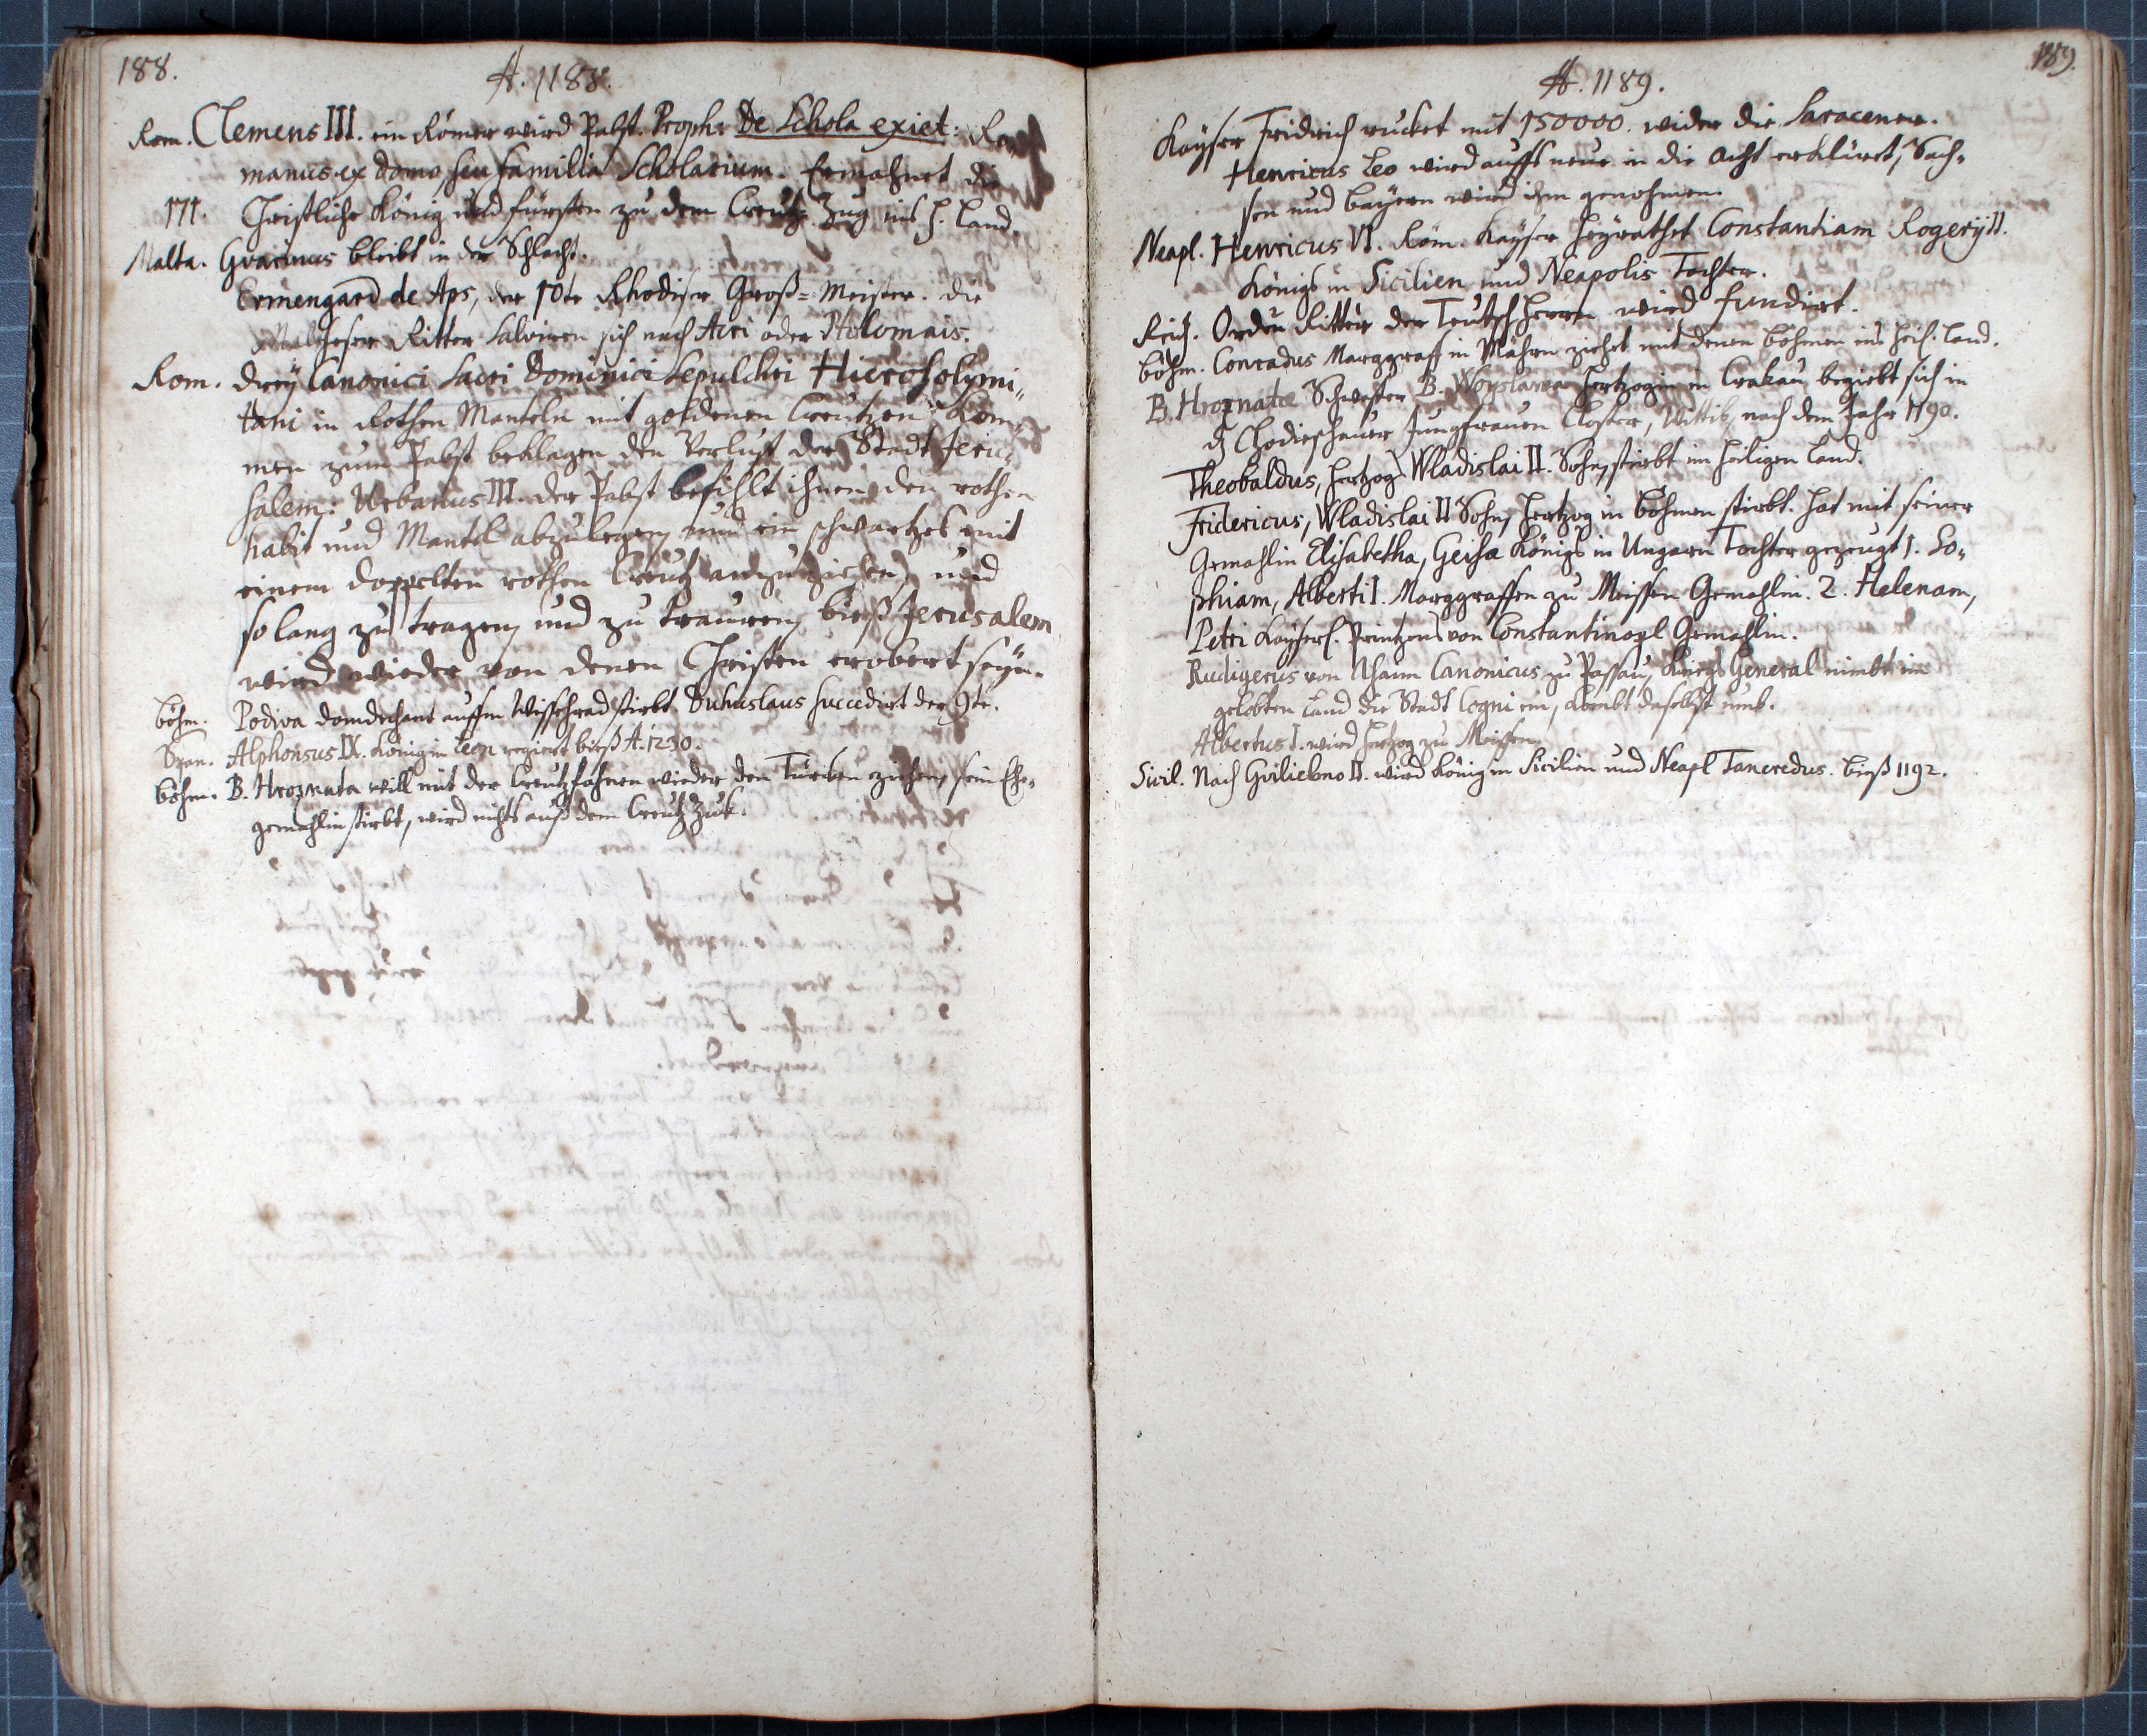 188.
A. 1188.
Rom. Clemens III. ein Römer wird Pabst. Proph: De Schola exiet: Ro„
manus ex domo, seu familia Scholarium. Ermahnet die
171. Christliche König und fürsten zu dem Creutz Zug ins h. Land.
Malta. Gvarinus bleibt in der Schlacht.
Ermengard de Aps, der 10te Rhodiser Groß=Meister. die
Maltheser Ritter salviren sich nach Acri oder Ptolomais.
Rom. drey Canonici Sacri Dominici Sepulchri Hierosolymi„
tani in Rothen Mänteln mit goldenen Creutzen kom„
men zum Pabst beklagen den Verlust der Stadt Jeru„
salem: Urbanus III. der Pabst befihlt ihnen den rothen
habit und Mantel abzulegen, und ein schwartzes mit
einem doppelten rothen Creutz anzuziehen, und
so lang zu tragen, und zu trauren, bieß Jerusalem
wird wieder von denen Christen erobert seyn.
böhm. Podiva domdechant auffm Wissehrad stirbt. Duhuslaus succedirt der 9te.
Span. Alphonsus IX. König in Leon regiert bieß A. 1230.
böhm. B. Hroznata will mit der Creutzfahnen wieder den Türcken ziehen, sein Ehe„
gemahlin stirbt, wird nichts auß dem Creutz Zuk.
189.
A. 1189.
Kayser Fridrich rucket mit 150000. wider die Saracener.
Henricus Leo wird auffs neue in die Acht erkläret, Sach„
sen und Bayern wird ihm genohmen.
Neapl. Henricus VI. Röm. Kayser heyrathet Constantiam Rogerij II.
Königs in Sicilien und Neapolis Tochter.
Reich. Orden Ritter der Teutsch Herrn wird fundirt.
böhm. Conradus Marggraff in Mähren ziehet mit denen böhmen ins heil. Land.
B. Hroznatæ Schwester B. Woyslawa Hertzogin in Crakau begiebt sich in
d Chodieschauer Jungfrauen Closter, Wittib, nach dem Jahr 1190.
Theobaldus, Hertzog Wladislai II. Sohn, stirbt im heiligen Land.
Fridericus, Wladislai II Sohn, Hertzog in böhmen stirbt. hat mit seiner
Gemahlin Elisabetha, Geisa Königs in Ungarn Tochter gezeugt 1. So„
phiam, Alberti I. Marggraffen zu Meissen Gemahlin. 2. Helenam,
Petri Kayserl. Printzens von Constantinopl Gemahlin.
Rudigerus von Canonicus zu Passau, Kriegs General nimbt im
gelobten Land die Stadt Cogni ein, kombt daselbst umb.
Albertus I. wird Hertzog zu Meissen.
Sicil. Nach Gvilielmo II. wird König in Sicilien und Neapl Tancredus. bieß 1192.